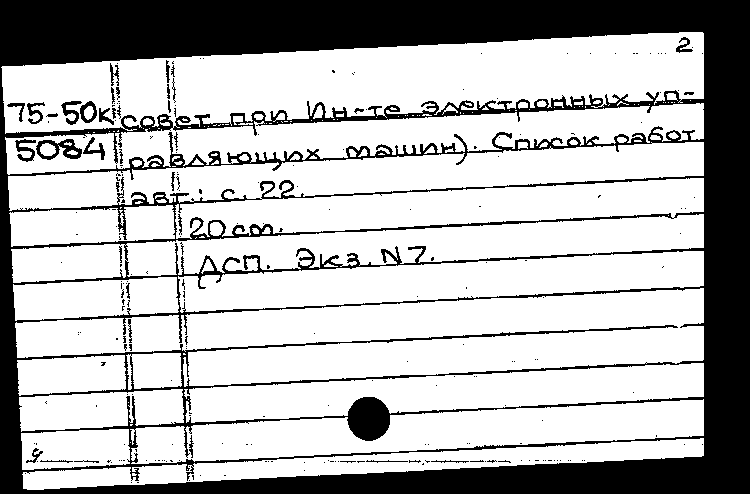 2
75-50к совет при Ин-те электронных уп-
5084 равляющих машин). Список работ
авт.: с. 22.
20 cm.
ДСП. Экз. N 7.